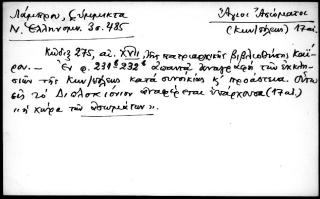 Λάμπρου, Σύμμικτα
Ἅγιοι Ἀσώματοι
Ν. Ἑλληνομν. 3σ. 485
(Κων/πόλεως) 17 αἰ.
Κῶδιξ 275, αἰ. XVII, τῆς πατριαρχικῆς βιβλιοθήκης Καΐ-
ρου. — Ἐν φ. 231β 232α ἀπαντᾷ ἀναγραφὴ τῶν ἐκκλη-
σιῶν τῆς Κων/πόλεως κατὰ συνοικίας κ' προάστεια. Οὕτω
εἰς τὸ Διπλοκιόνιον ἀναφέρεται ὑπάρχουσα (17 αἰ.)
« ἡ χώρα τῶν Ἀσωμάτων ».